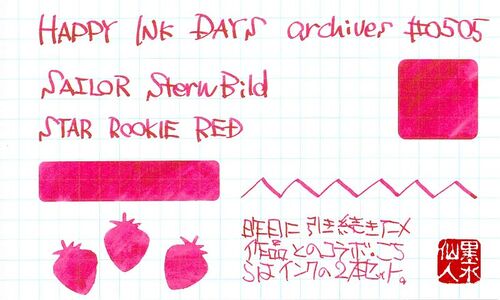 HAPPY INK DAYS archives #0505
SAILOR SternBild
STAR ROOKIE RED
昨日に引き続きアニメ
作品とのコラボ。こち
らはインクの2本セット。
墨水
仙人